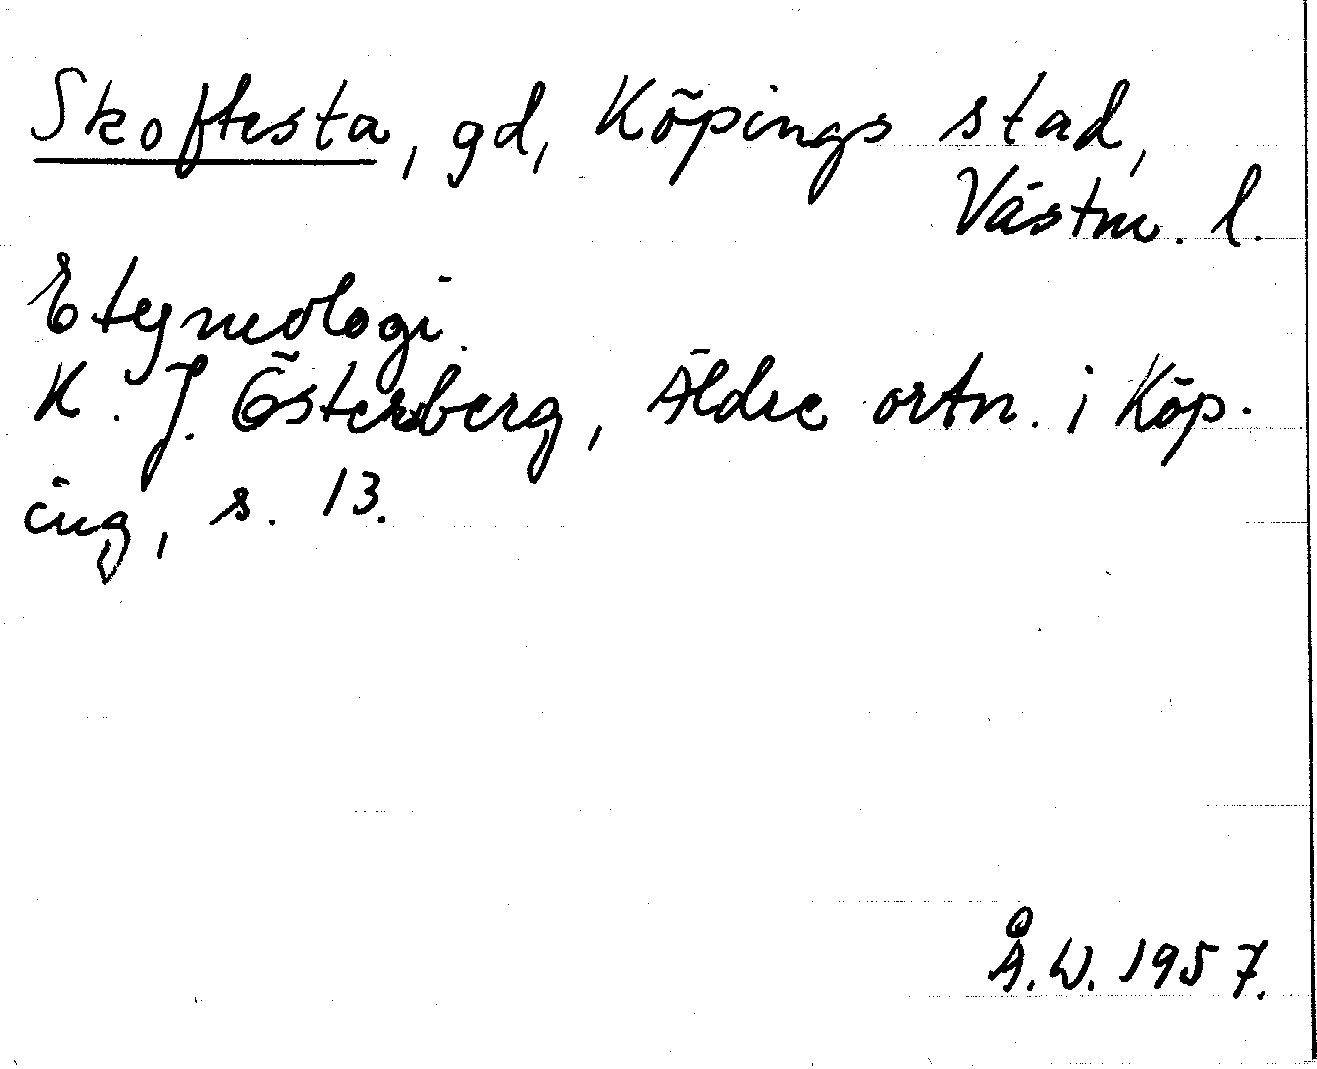 Skoftesta, gd, Köpings stad,
Västm. l.
Etymologi.
K. J. Österberg, Äldre ortn. i Köp-
ing, s. 13.
Å.W. 1957.